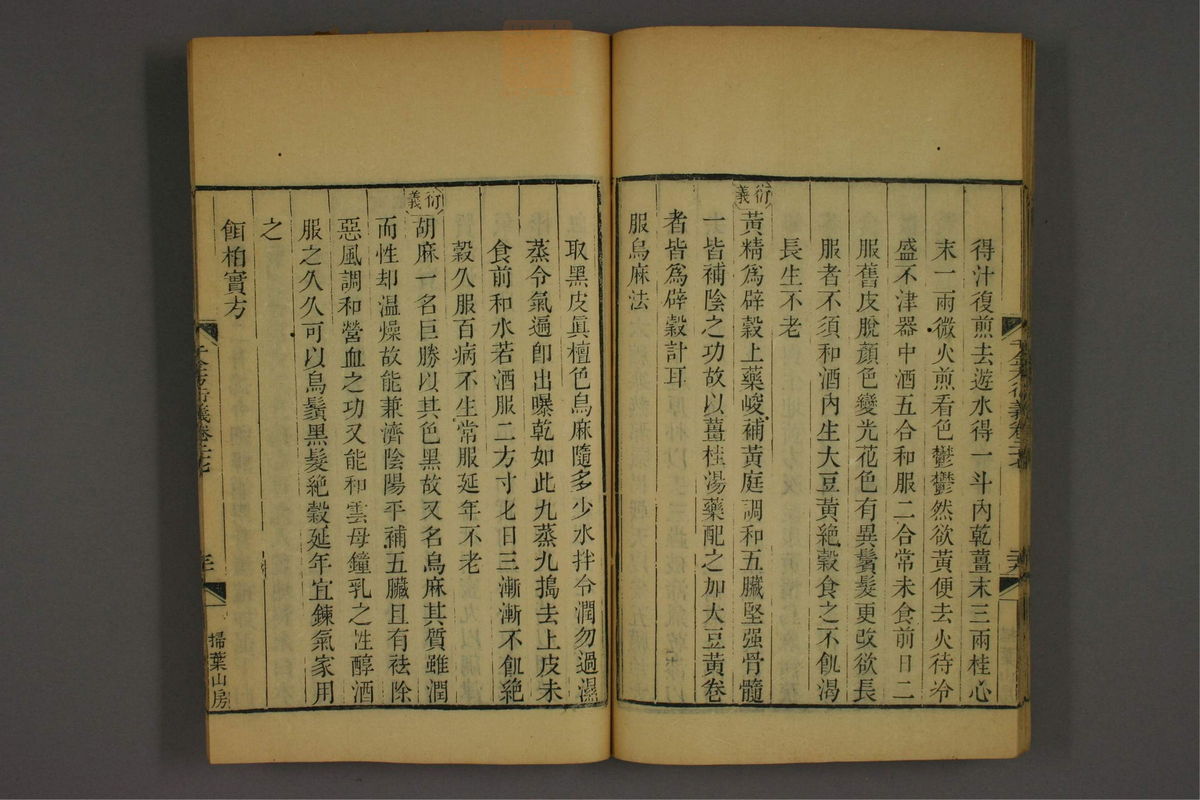 得汁復煎去遊水得一斗內乾薑末三兩桂心
末一兩微火煎看色鬱鬱然欲黃便去火待冷
盛不津器中酒五合和服二合常未食前日二
服舊皮脫顏色變光花色有異鬢髮更改欲長
服者不須和酒內生大豆黃絶穀食之不飢渴
長生不老
衍義
黃精爲辟穀上藥峻補黃庭調和五臟堅强骨髓
一皆補陰之功故以薑桂湯藥配之加大豆黃卷
者皆爲辟穀計耳
服烏麻法
取黑皮眞檀色烏麻隨多少水拌令潤勿過濕
蒸令氣遍卽出曝乾如此九蒸九搗去上皮未
食前和水若酒服二方寸匕日三漸漸不飢絶
穀久服百病不生常服延年不老
衍義
胡麻一名巨勝以其色黑故又名烏麻其質雖潤
而性却温燥故能兼濟陰陽平補五臟且有袪除
惡風調和營血之功又能和雲母鐘乳之性醇酒
服之久久可以烏鬚黑髮絶穀延年宜鍊氣家用
之
餌柏實方
千金方衍義卷二十七
掃葉山房